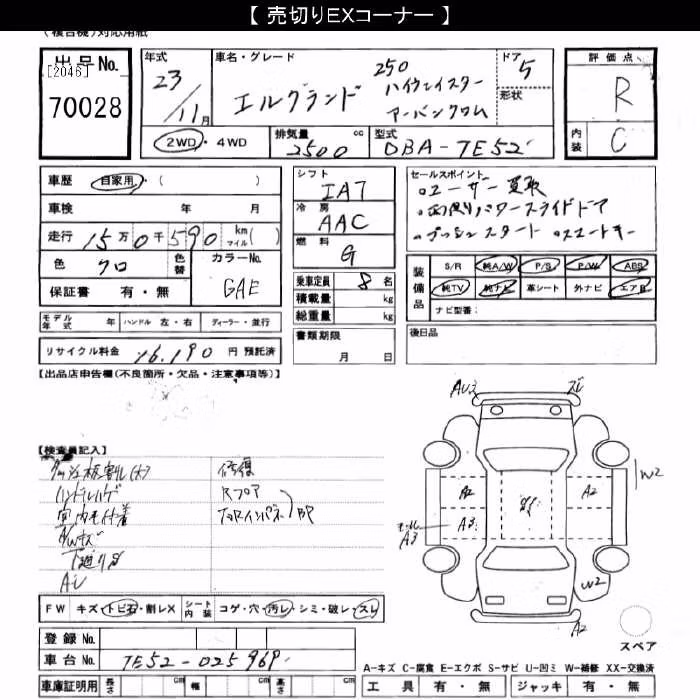 【 売切りEXコーナー 】
(複合機)対応用紙
出品No.
[2046]
70028
年式
23/11月
車名・グレード
エルグランド
250
ハイウェイスター
アーバンクロム
ドア
5
形状
評価点
R
内装
C
2WD・4WD
排気量 cc
2500
型式
DBA-TE52
車歴 自家用・( )
車検 年 月
走行 15万0千590 kmマイル( )
色 クロ 色替 カラーNo. GAE
保証書 有・無
モデル年式 年 ハンドル 左・右 ディーラー・並行
リサイクル料金 16,190 円 預託済
シフト
IA7
冷房
AAC
燃料
G
乗車定員 8 名
積載量 kg
総重量 kg
書類期限
月 日
セールスポイント
・ユーザー買取
・両側パワースライドドア
・プッシュスタート ・スマートキー
装備品
S/R 純A/W P/S P/W ABS
純TV 純ナビ 革シート 外ナビ エアB
ナビ型番:
後日品
【出品店申告欄(不良箇所・欠品・注意事項等)】
【検査員記入】
ダッシュ板割れ(大)
ハンドルハゲ
室内モケ付着
下廻りサ
Aレ
修復
Rフロア
BP
FW キズ・トビ石・割レX シート内装 コゲ・穴・汚レ・シミ・破レ・スレ
登録No.
車台No. TE52-025969
車庫証明用 長さ cm 幅 cm 高さ cm
A3
ズレ
W2
A2
A3
モール
A3
A2
W2
A2
スペア
A-キズ C-腐食 E-エクボ S-サビ U-凹ミ W-補修 XX-交換済
工具 有・無 ジャッキ 有・無